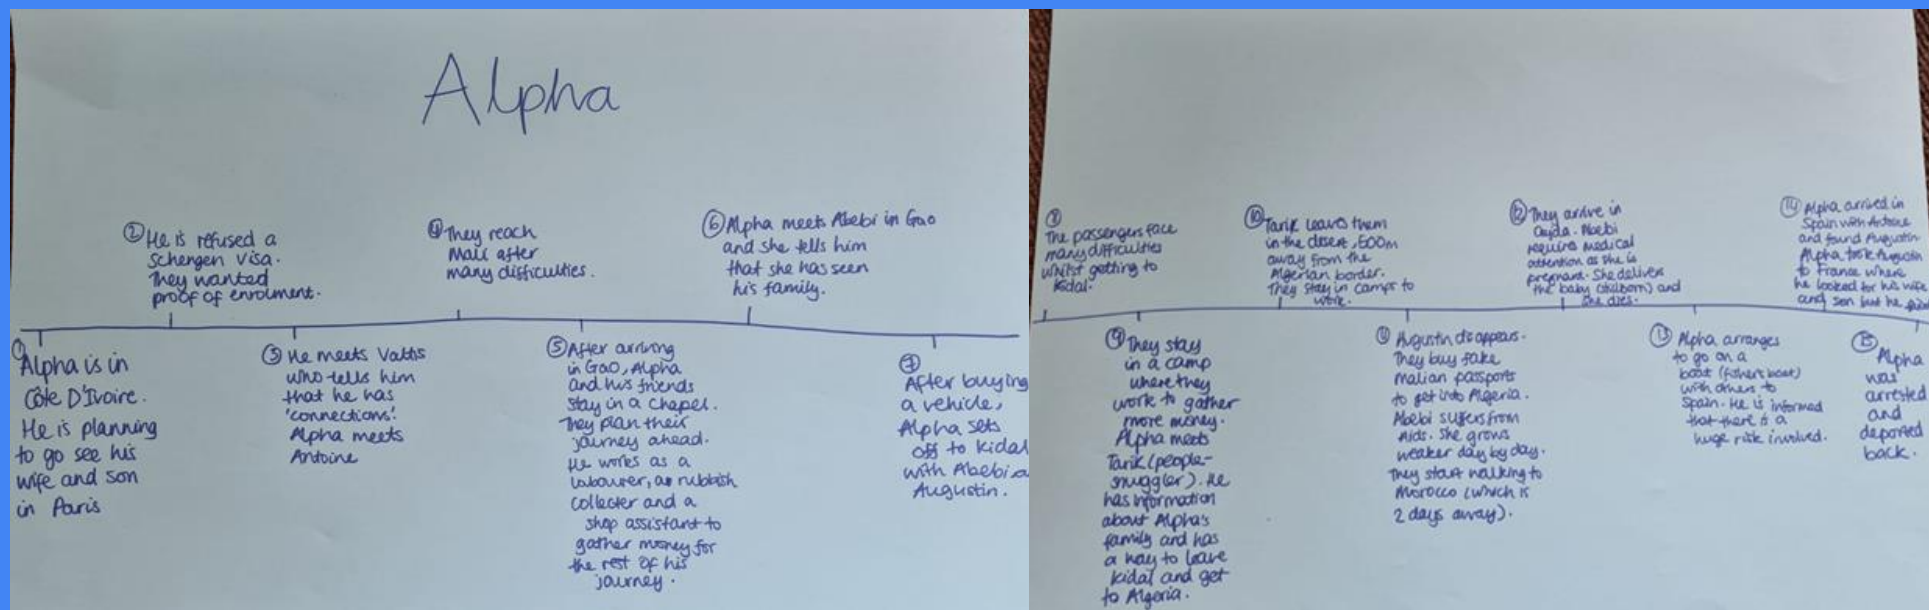 Alpha
① Alpha is in
Côte D'Ivoire.
He is planning
to go see his
wife and son
in Paris
② He is refused a
Schengen Visa.
They wanted
proof of enrolment.
③ He meets
who tells him
that he has
'connections'.
Alpha meets
Antoine
④ They reach
Mali after
many difficulties.
⑤ After arriving
in Gao, Alpha
and his friends
stay in a chapel.
They plan their
journey ahead.
He works as a
labourer, a rubbish
collecter and a
shop assistant to
gather money for
the rest of his
journey.
⑥ Alpha meets Abebi in Gao
and she tells him
that she has seen
his family.
⑦
After buying
a vehicle,
Alpha sets
off to Kidal
with Abebi
Augustin.
⑧
The passengers face
many difficulties
whilst getting to
Kidal.
⑨ They stay
in a camp
where they
work to gather
more money.
Alpha meets
Tarik (people-
smuggler). He
has information
about Alpha's
family and has
a way to leave
Kidal and get
to Algeria.
⑩ Tarik leaves them
in the desert, 500m
away from the
Algerian border.
They stay in camps to
work.
⑪ Augustin disappears.
They buy fake
malian passports
to get into Algeria.
Abebi suffers from
Aids. She grows
weaker day by day.
They start walking to
Morocco (which is
2 days away).
⑫ They arrive in
Oujda. Abebi
requires medical
attention as she is
pregnant. She delivers
the baby (stillborn) and
she dies.
⑬ Alpha arranges
to go on a
boat (fishers boat)
with others to
Spain. He is informed
that there is a
huge risk involved.
⑭ Alpha arrived in
Spain with Antoine
and found Augustin
Alpha took Augustin
to France where
he looked for his wife
and son but he
⑮ Alpha
was
arrested
and
deported
back.